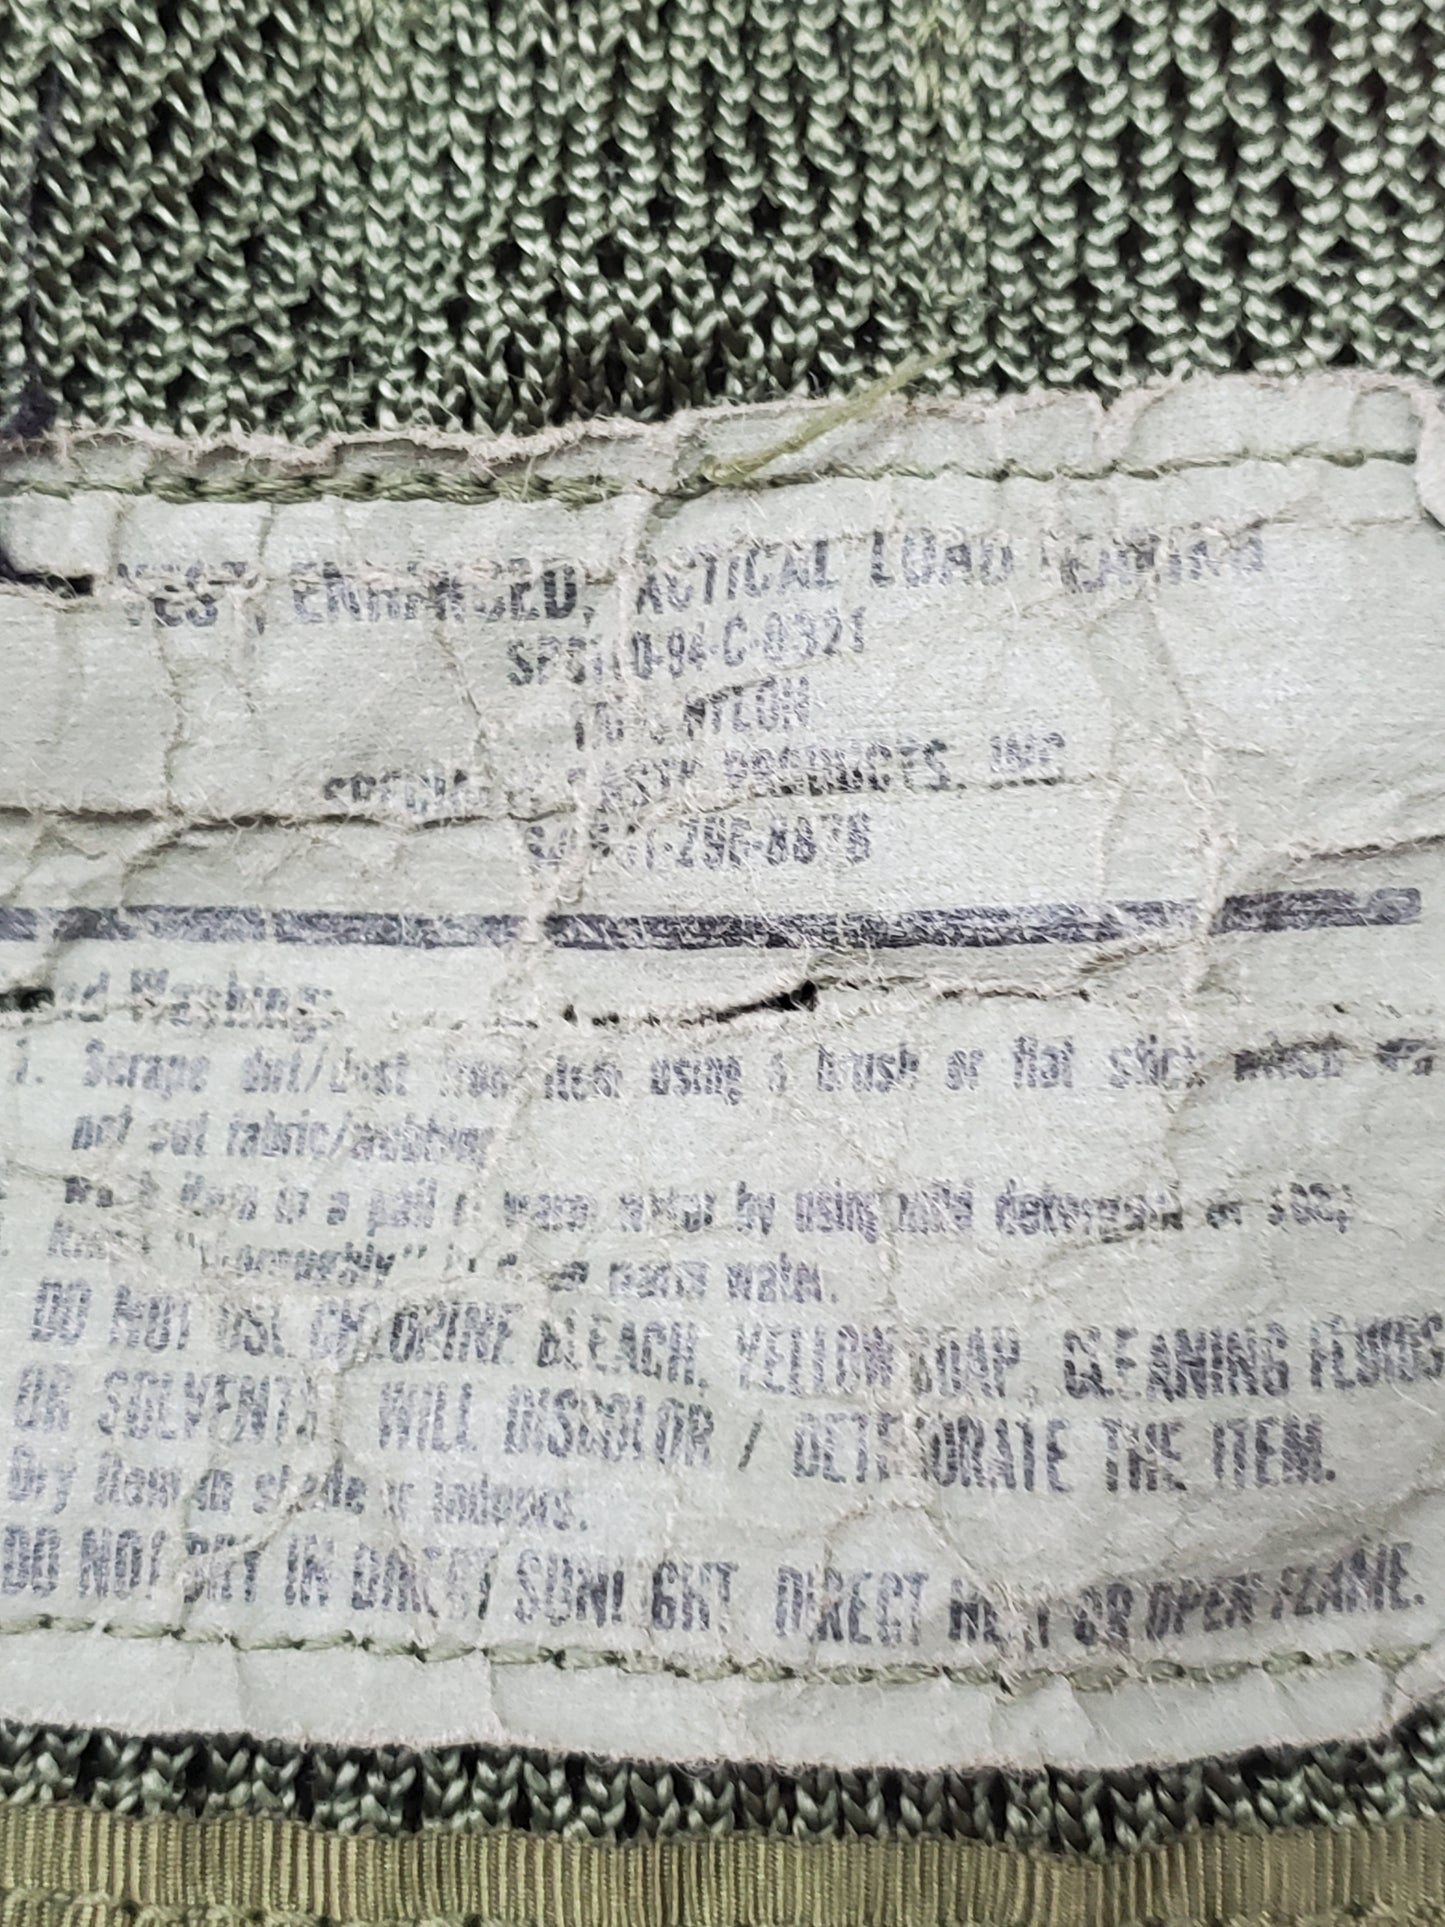 VEST, ENHANCED, TACTICAL LOAD BEARING
SPO100-94-C-0321
100% NYLON
SPECIALTY PLASTIC PRODUCTS, INC
Hand Washing:
1. Scrape dirt/dust from item using a brush or flat stick which will
not cut fabric/webbing
Wash item in a pail of warm water by using mild detergent or soap
Rinse "thoroughly" in clean warm water.
DO NOT USE CHLORINE BLEACH, YELLOW SOAP, CLEANING FLUIDS
OR SOLVENTS WILL DISCOLOR / DETERIORATE THE ITEM.
Dry item in shade or indoors.
DO NOT DRY IN DIRECT SUNLIGHT, DIRECT HEAT OR OPEN FLAME.